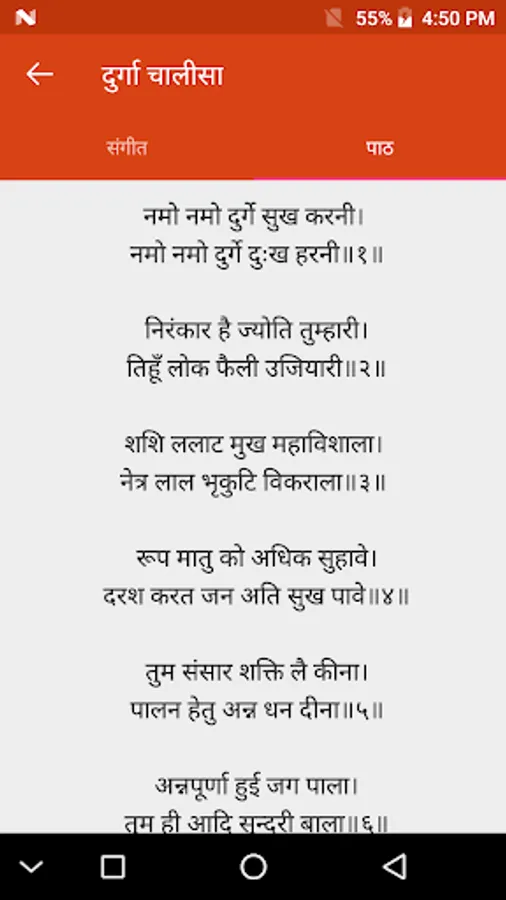 55% 4:50 PM
दुर्गा चालीसा
संगीत पाठ
नमो नमो दुर्गे सुख करनी।
नमो नमो दुर्गे दुःख हरनी॥१॥
निरंकार है ज्योति तुम्हारी।
तिहूँ लोक फैली उजियारी॥२॥
शशि ललाट मुख महाविशाला।
नेत्र लाल भृकुटि विकराला॥३॥
रूप मातु को अधिक सुहावे।
दरश करत जन अति सुख पावे॥४॥
तुम संसार शक्ति लै कीना।
पालन हेतु अन्न धन दीना॥५॥
अन्नपूर्णा हुई जग पाला।
तुम ही आदि सुन्दरी बाला॥६॥